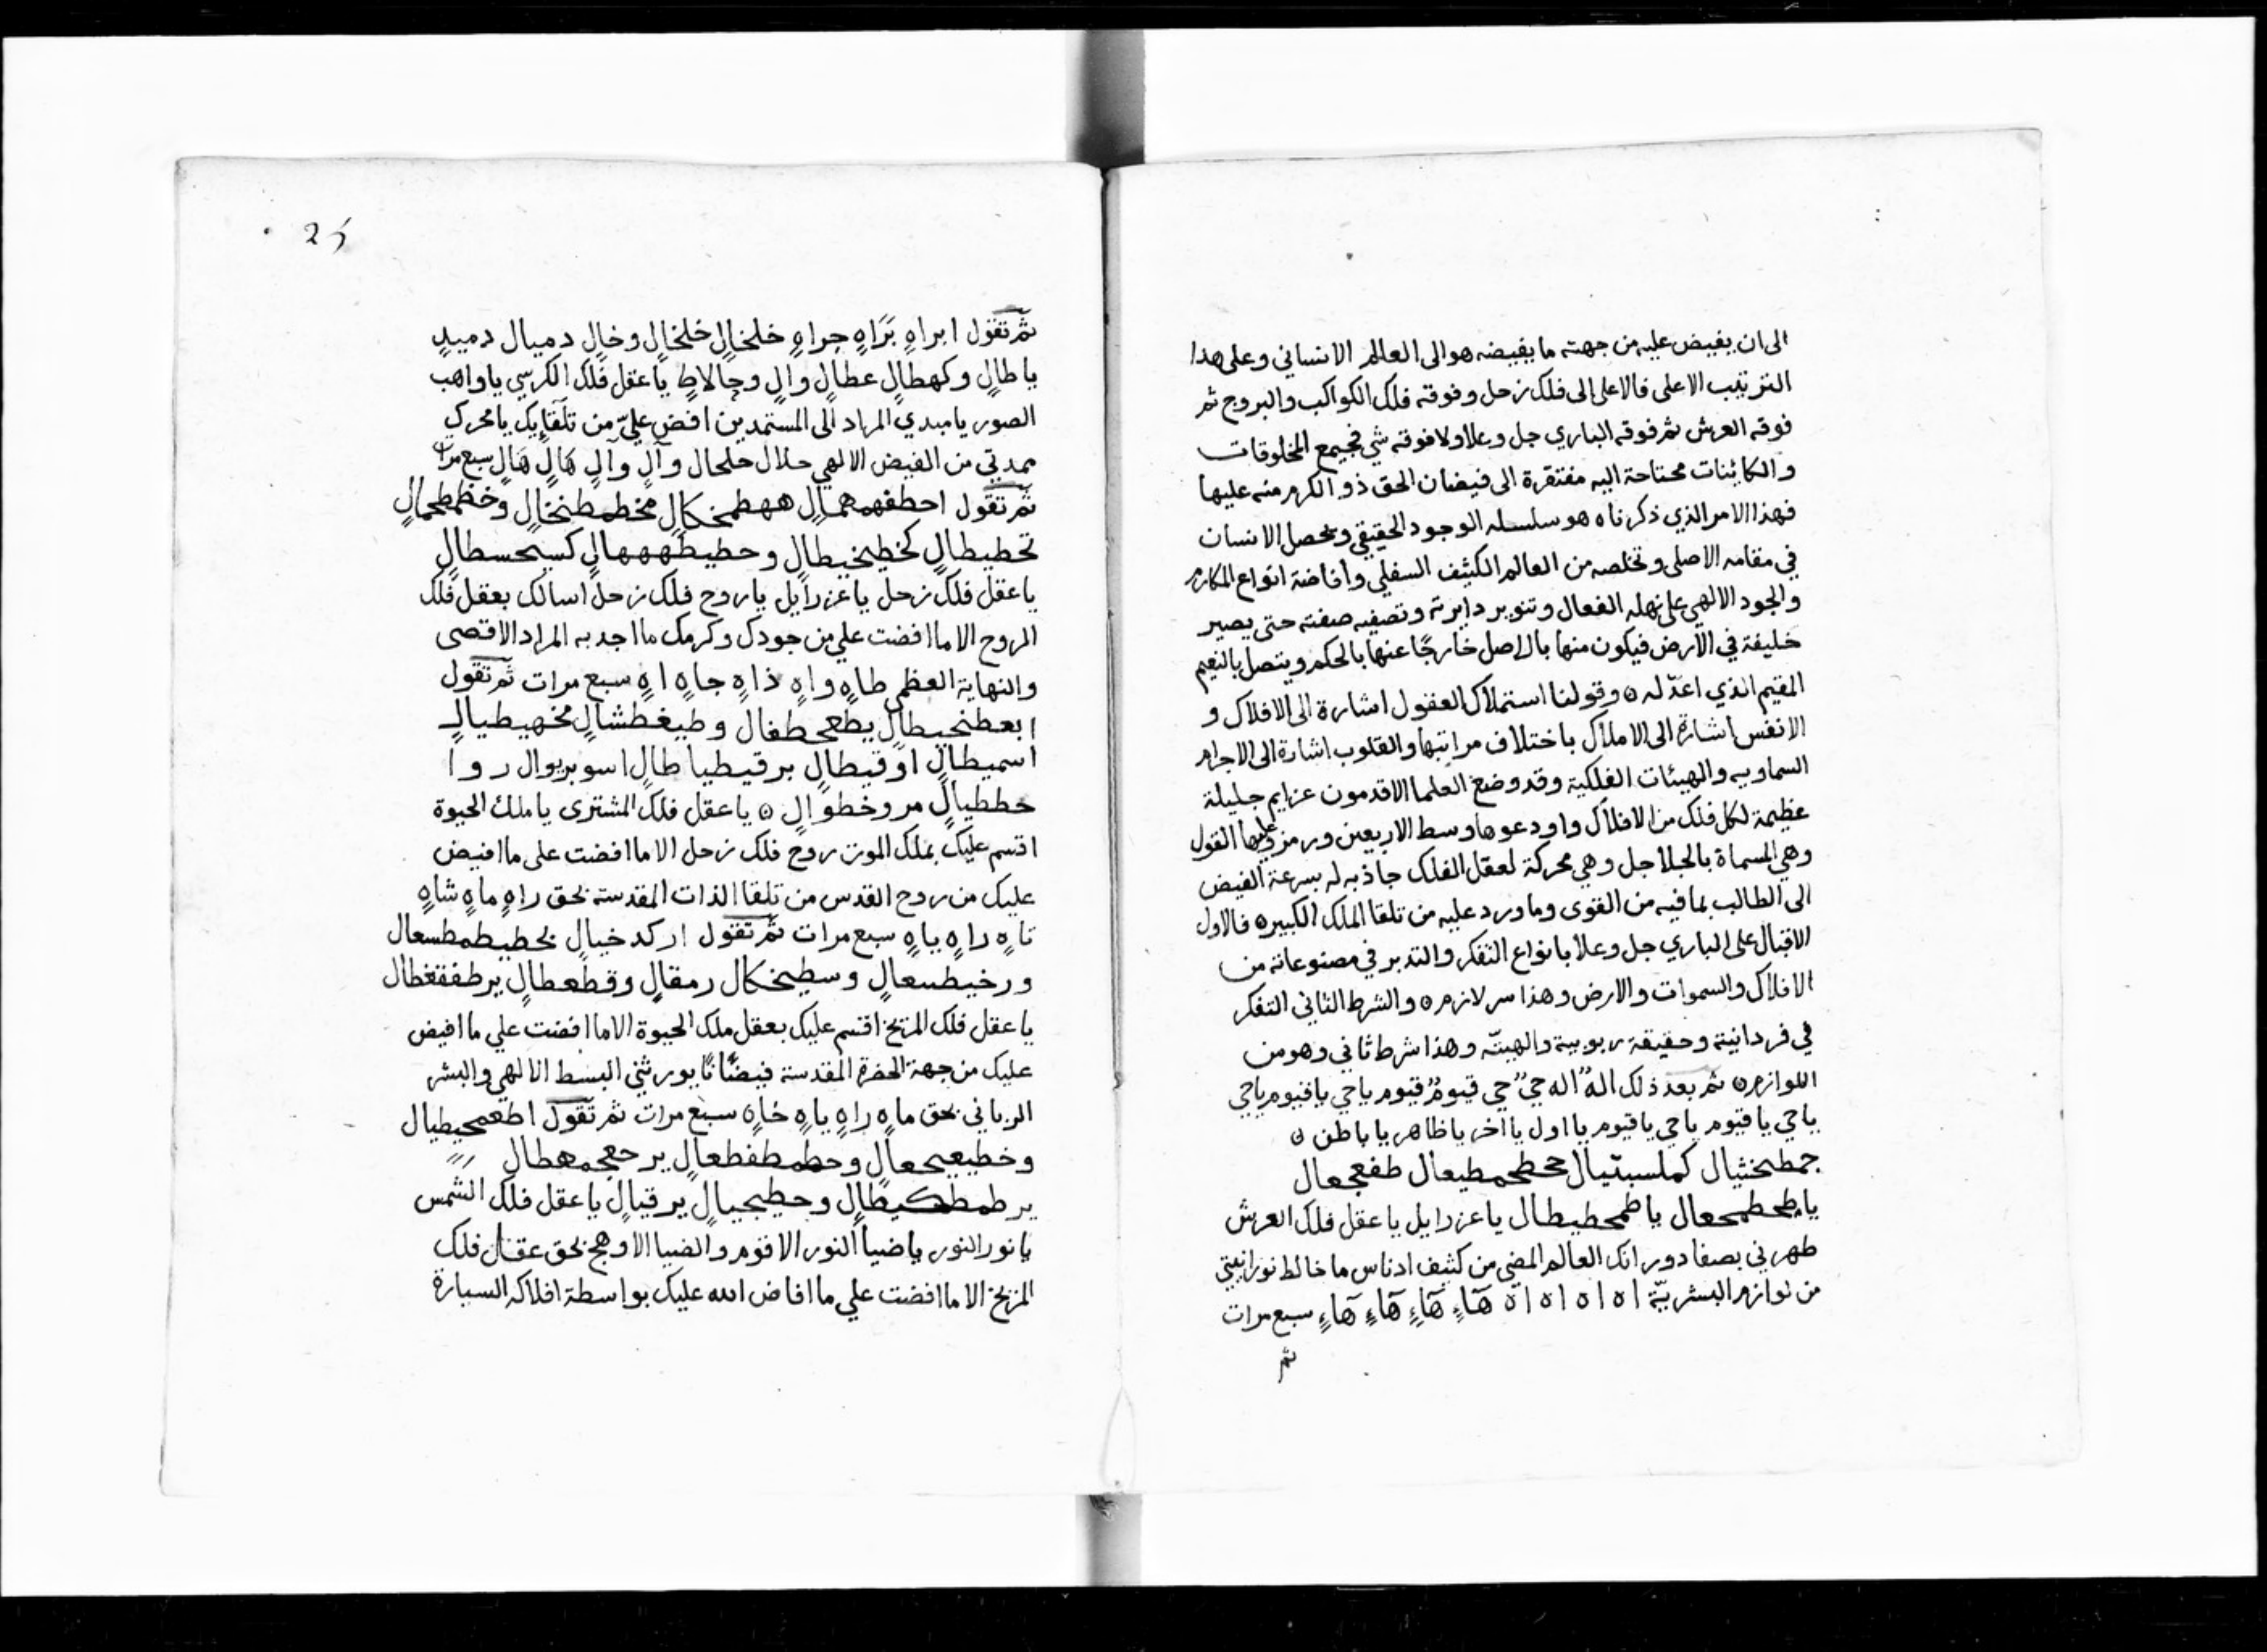 الى ان يفيض عليه من جهته ما يفيضه هو الى العالم الانساني وعلى هذا
الترتيب الاعلى فالاعلى الى فلك زحل وفوقه فلك الكواكب والبروج ثم
فوقه العرش ثم فوقه الباري جل وعلا ولا فوقه شي فجميع المخلوقات
والكاينات محتاجة اليه مفتقرة الى فيضان الحق ذو الكرم منه عليها
فهذا الامر الذي ذكرناه هو سلسله الوجود الحقيقي ومحصل الانسان
في مقامه الاصلى وتخلصه من العالم الكثيف السفلي وافاضة انواع المكارم
والجود الالهي على الفعال وتنوير دايرته وتصفيه صفته حتى يصير
خليفة في الارض فيكون منها بالاصل خارجًا عنها بالحكم ويتصل بالنعيم
المقيم الذي اعدّ له ٥ وقولنا استملاك العقول اشارة الى الافلاك و
الانفس اشارة الى الاملاك باختلاف مراتبها والقلوب اشارة الى الاجرام
السماويه والهيئات الفلكية وقد وضع العلما الاقدمون عزايم جليلة
عظيمة لكل فلك من الافلاك واودعوها وسط الاربعين ورمزو عليها القول
وهي المسماة بالجلاجل وهي محركة لعقل الفلك جاذبه له بسرعة الفيض
الى الطالب بما فيه من القوى وما ورد عليه من تلقا الملك الكبير ٥ فالاول
الاقبال على الباري جل وعلا بانواع التفكر والتدبر في مصنوعاته من
الافلاك والسموات والارض وهذا سر لازم ٥ والشرط الثاني التفكر
في فردانيته وحقيقة ربوبيية والهيتّه وهذا شرط ثاني وهو من
اللوازم ٥ ثم بعد ذلك الهٌ اله حيٌ حي قيومٌ قيوم ياحي ياقيوم ياحي
ياحي ياقيوم ياحي ياقيوم يا اول يا اخر يا ظاهر يا باطن ٥
جمطخثيال كملسبثيال طفعجعال
يا عزرايل يا عقل فلك العرش
طهرني بصفا دورانك العالم المضي من كثيف ادناس ما خالط نورانيتي
من لوازم البشريّة اه اه اه اه اة هآءٍ هآءٍ هآءٍ هآءٍ سبع مرات
ثم
25
ثم تقول ابراهٍ بَرَاهٍ جراهٍ خلخالٍ خلخالٍ وخالٍ دميال دميدٍ
يا طالٍ وكهطالٍ عطالٍ والٍ وجالاطٍ يا عقل فلك الكرسي يا واهب
الصور يا مبدي المراد الى المستمدين افض عليّ من تلقايك يا محرك
من الفيض الالهي حلال حلحال وآلٍ وآلٍ هَالٍ هَالٍ سبع مرات
ثم تقول
تحطيطالٍ كخطيخيطالٍ
يا عقل فلك زحل يا عزرايل يا روح فلك زحل اسالك بعقل فلك
الروح الا ما افضت علي من جودك وكرمك ما اجد به المراد الاقصى
والنهاية العظمى طاهٍ واهٍ ذاهٍ جاهٍ اهٍ سبع مرات ثم تقول
اسميطالٍ اوقيطالٍ برقيطيا طالٍ
خططيالٍ مروخطوالٍ ٥ يا عقل فلك المشترى يا ملك الحيوة
اقسم عليك بملك الموت روح فلك زحل الا ما افضت على ما افيض
عليك من روح القدس من تلقا الذات المقدسة بحق راهٍ ماهٍ شاهٍ
تاهٍ راهٍ ياهٍ سبع مرات ثم تقول اركد خيالٍ
ورخيطسعالٍ وسطيخكال رمقالٍ وقطعطالٍ
يا عقل فلك المريخ اقسم عليك بعقل ملك الحيوة الا ما افضت علي ما افيض
عليك من جهة الحضرة المقدسة يورثني البسط الالهي والبشر
الرباني بحق ماهٍ راهٍ ياهٍ خاهٍ سبع مرات ثم تقول اطعمحيطيال
يرطمطكيطالٍ وحطيجيالٍ يرقيالٍ يا عقل فلك الشمس
يا نور النور يا ضيا النور الاقوم والضيا الاوهج بحق عقل فلك
المريخ الا ما افضت علي ما افاض الله عليك بواسطة افلاكه السيارة